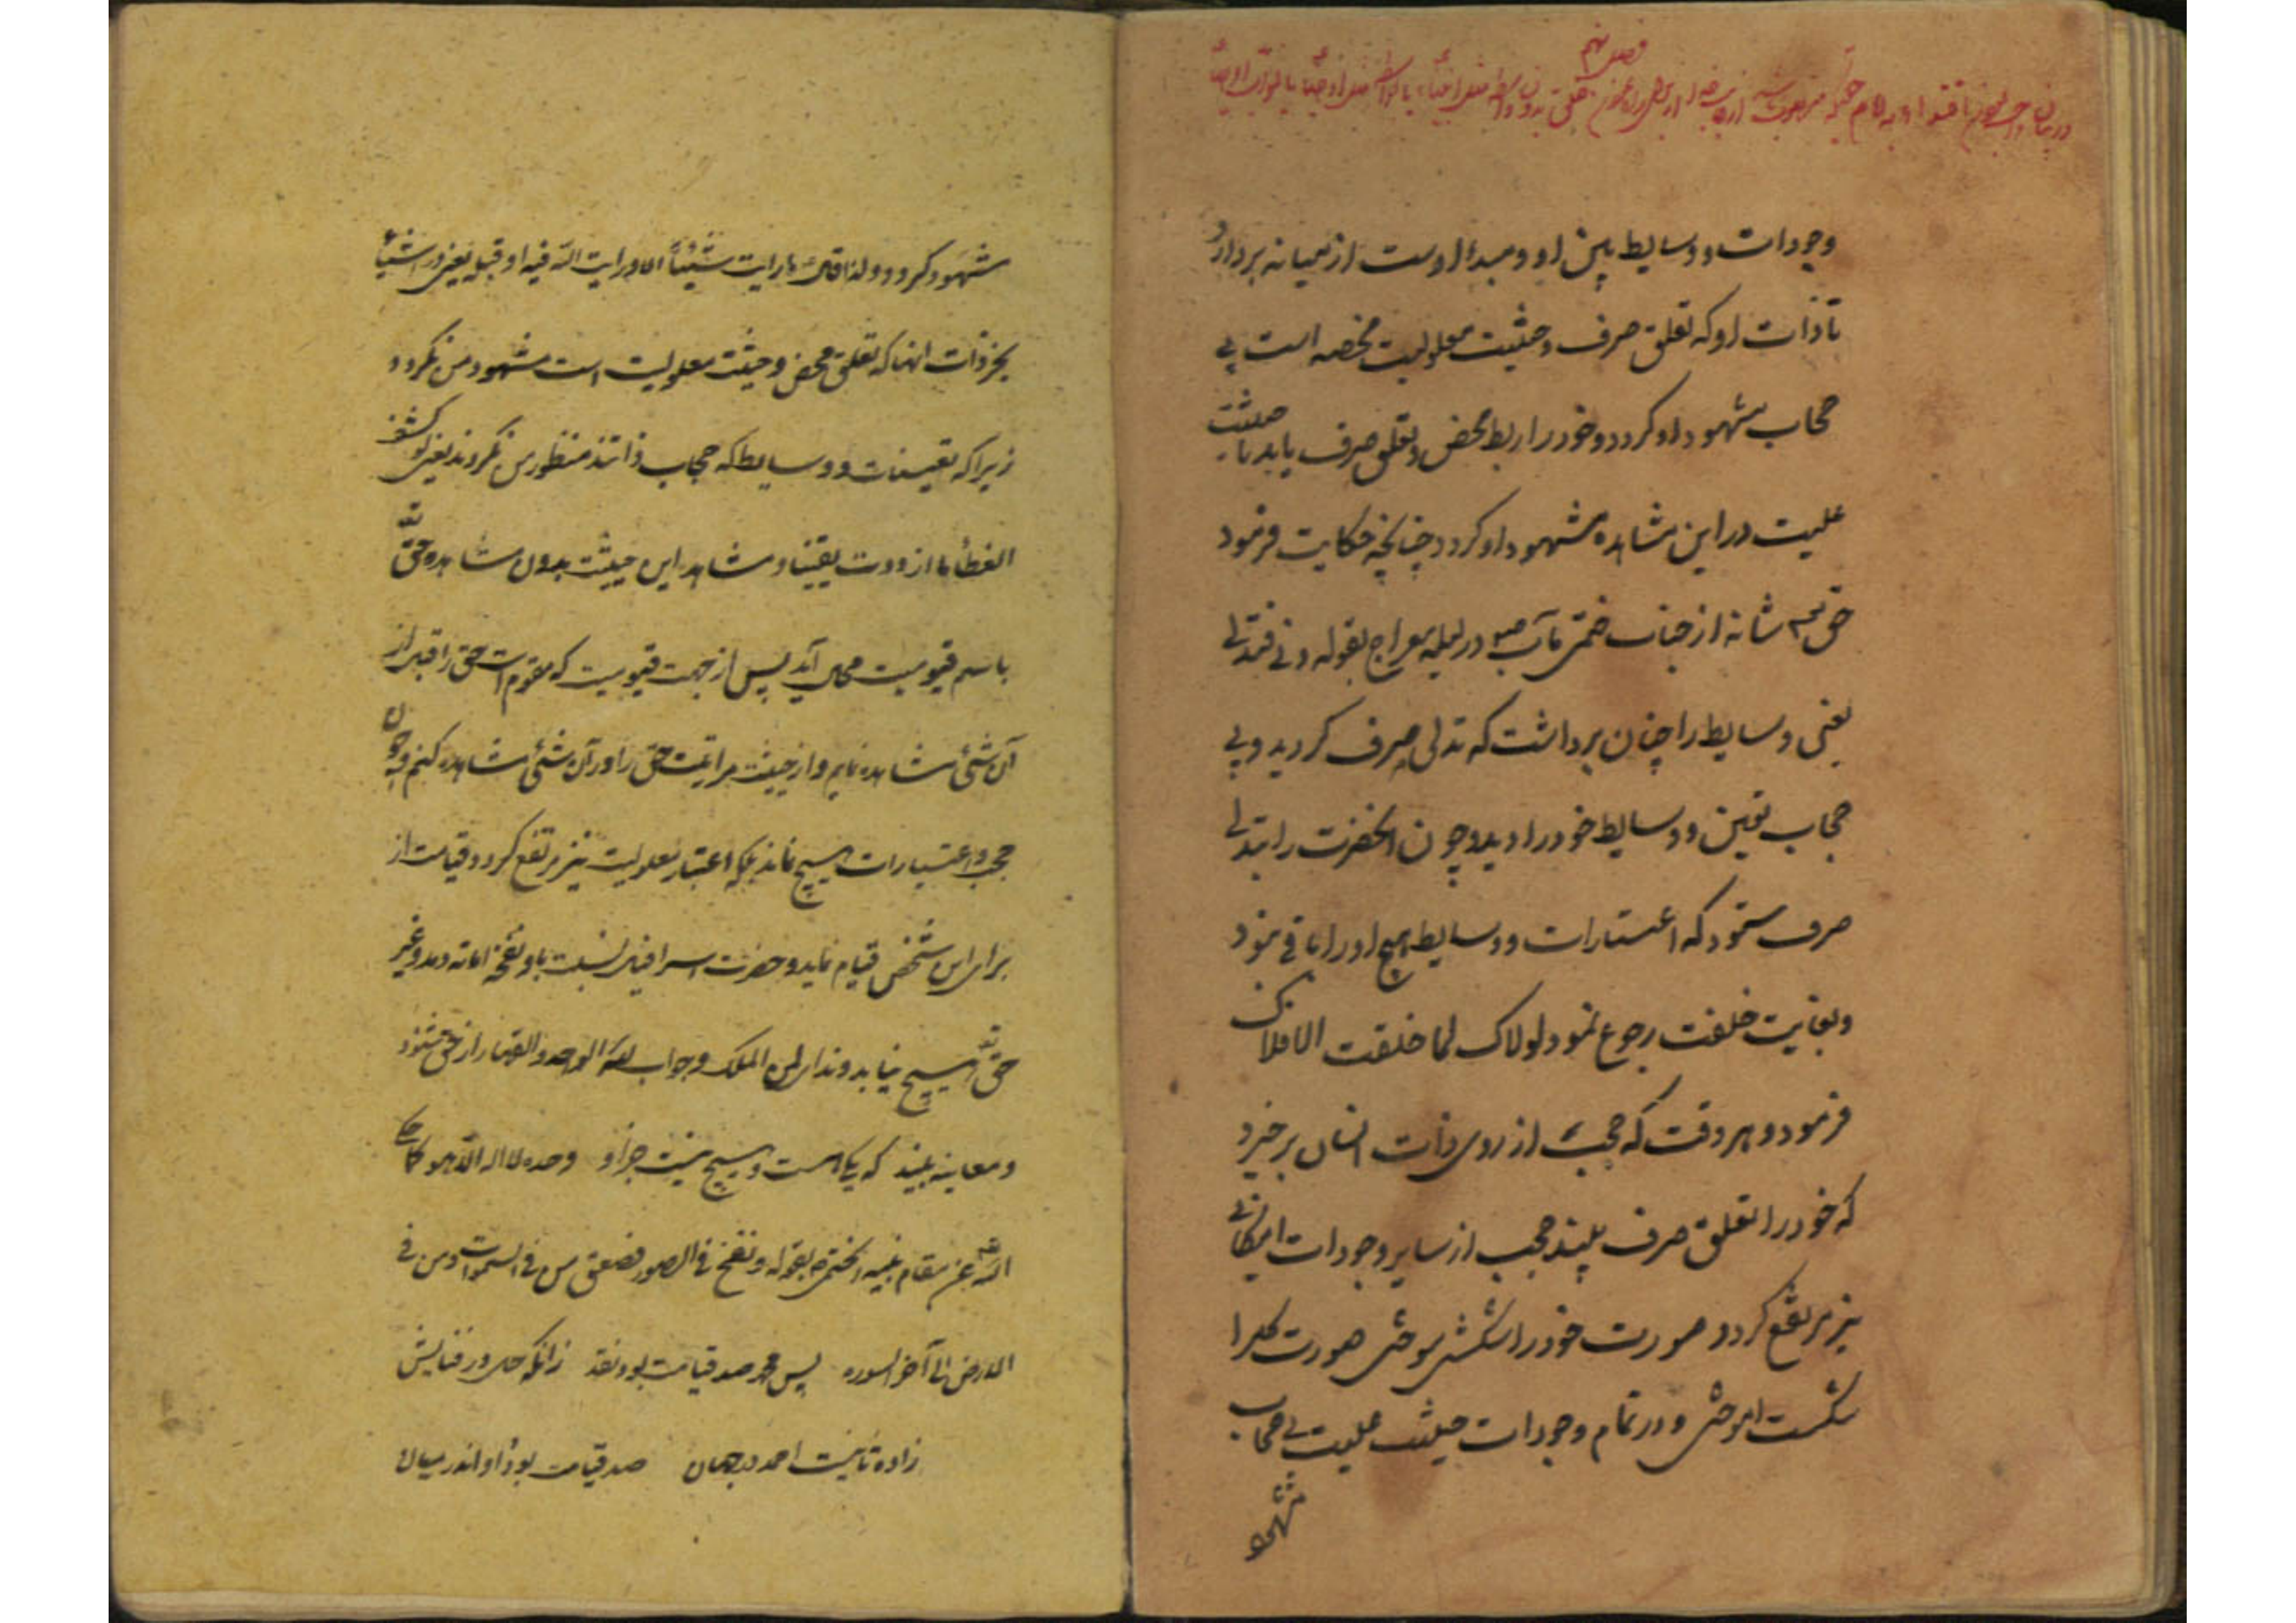 فصل نهم
در بیان
وجودات و وسایط پیش او و مبدأ اوست از میانه بردارد
تا ذات او که تعلق صرف و حیثیت معلولیت مخصه است بی
حجاب مشهود او گردد و خود را ربط محض و تعلق صرف یابد با حیثیت
علیت در این مشاهده مشهود او گردد چنانچه حکایت فرمود
حق شانه از جناب ختمی مآب ص در لیله معراج بقوله دنی فتدلی
یعنی وسایط را چنان برداشت که تدلی صرف گردید و بی
حجاب تعین و وسایط خود را دید و چون آنحضرت را بتدلی
صرف ستود که اعتبارات و وسایط هیچ او را باقی نبود
و بغایت خلقت رجوع نمود لولاک لما خلقت الافلاک
فرمود و هر وقت که حجب از روی ذات انسان برخیزد
که خود را تعلق صرف بیند حجب از سایر وجودات امکانی
نیز مرتفع گردد صورت خود را شکستی سوختی صورت کل را
شکست آموختی و در تمام وجودات حیثیت علیت بی حجاب
مشهود
شهود گردد و لذا قال ما رایت شیئاً الا و رایت الله فیه او قبله یعنی در اشیاء
بجز ذات آنها که تعلق محض و حیثیت معلولیت است مشهود من نگردد
زیرا که تعینات و وسایط که حجاب ذاتند منظور من نگردند یعنی لو کشف
الغطأ ما ازددت یقینا و مشاهده این حیثیت بدون مشاهده حق
باسم قیومیت محال آید پس از جهت قیومیت که مقوم است حق را قبل از
آن شئی مشاهده نمایم و از حیثیت مراتیت حق را در آن شئی مشاهده کنم و چون
حجب و اعتبارات هیچ نماند بلکه اعتبار معلولیت نیز مرتفع گردد قیامت از
برای این شخص قیام نماید و حضرت اسرافیل نسبت باو نفخه اماته دمد و غیر
حق هیچ نیابد و ندای لمن الملک و جواب لله الواحد القهار از حق شنود
و معاینه بیند که یکی هست و هیچ نیست جز او وحده لا اله الا هو کما حکی
الله عن مقام نبیه الختمی بقوله و نفخ فی الصور فصعق من فی السموات و من فی
الارض الی آخر السوره پس محمد صد قیامت بود نقد زانکه حل در فنایش
زاده ثانیست احمد در جهان صد قیامت بود او اندر میان